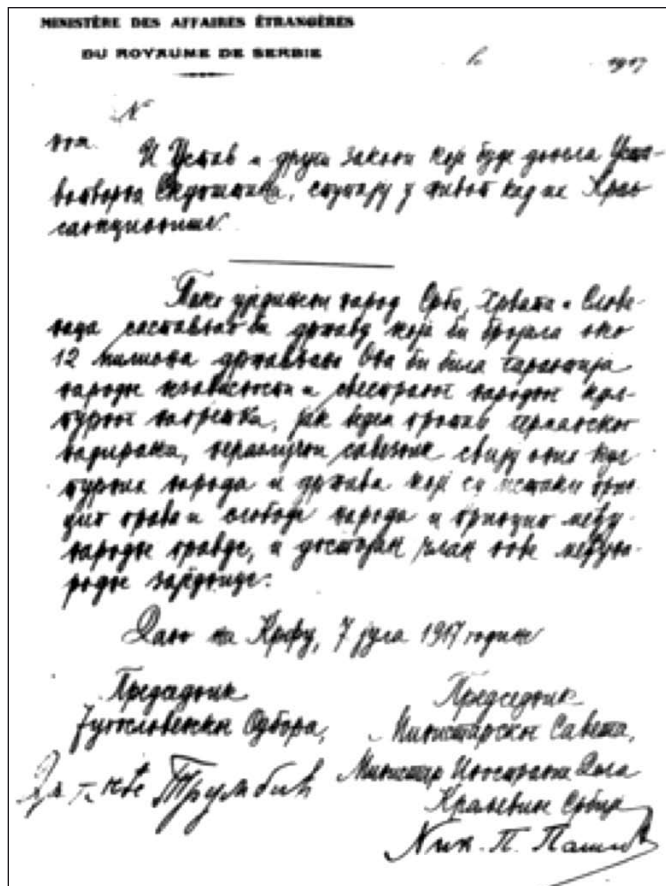 MINISTÈRE DES AFFAIRES ÉTRANGÈRES
DU ROYAUME DE SERBIE
1917
N
И Устав и други закони које буде донела Уста-
вотворна Скупштина, ступају у живот кад их Краљ
санкционише.
Тако уједињен народ Срба, Хрвата и Слове-
наца састављао би државу која би бројала око
12 милиона држављана Она би била гаранција
народне независности и свестраног народног кул-
турног напретка, јак бедем против германског
надирања, нераздучни савезник свију оних кул-
турних народа и држава које су истакле прин-
цип права и слободе народа и принцип међу-
народне правде, и достојан члан нове међуна-
родне заједнице.
Дано на Крфу, 7 јула 1917 године
Председник
Југословенског Одбора,
Др. Анте Трумбић
Председник
Министарског Савета,
Министар Иностраних Дела
Краљевине Србије
Ник. П. Пашић